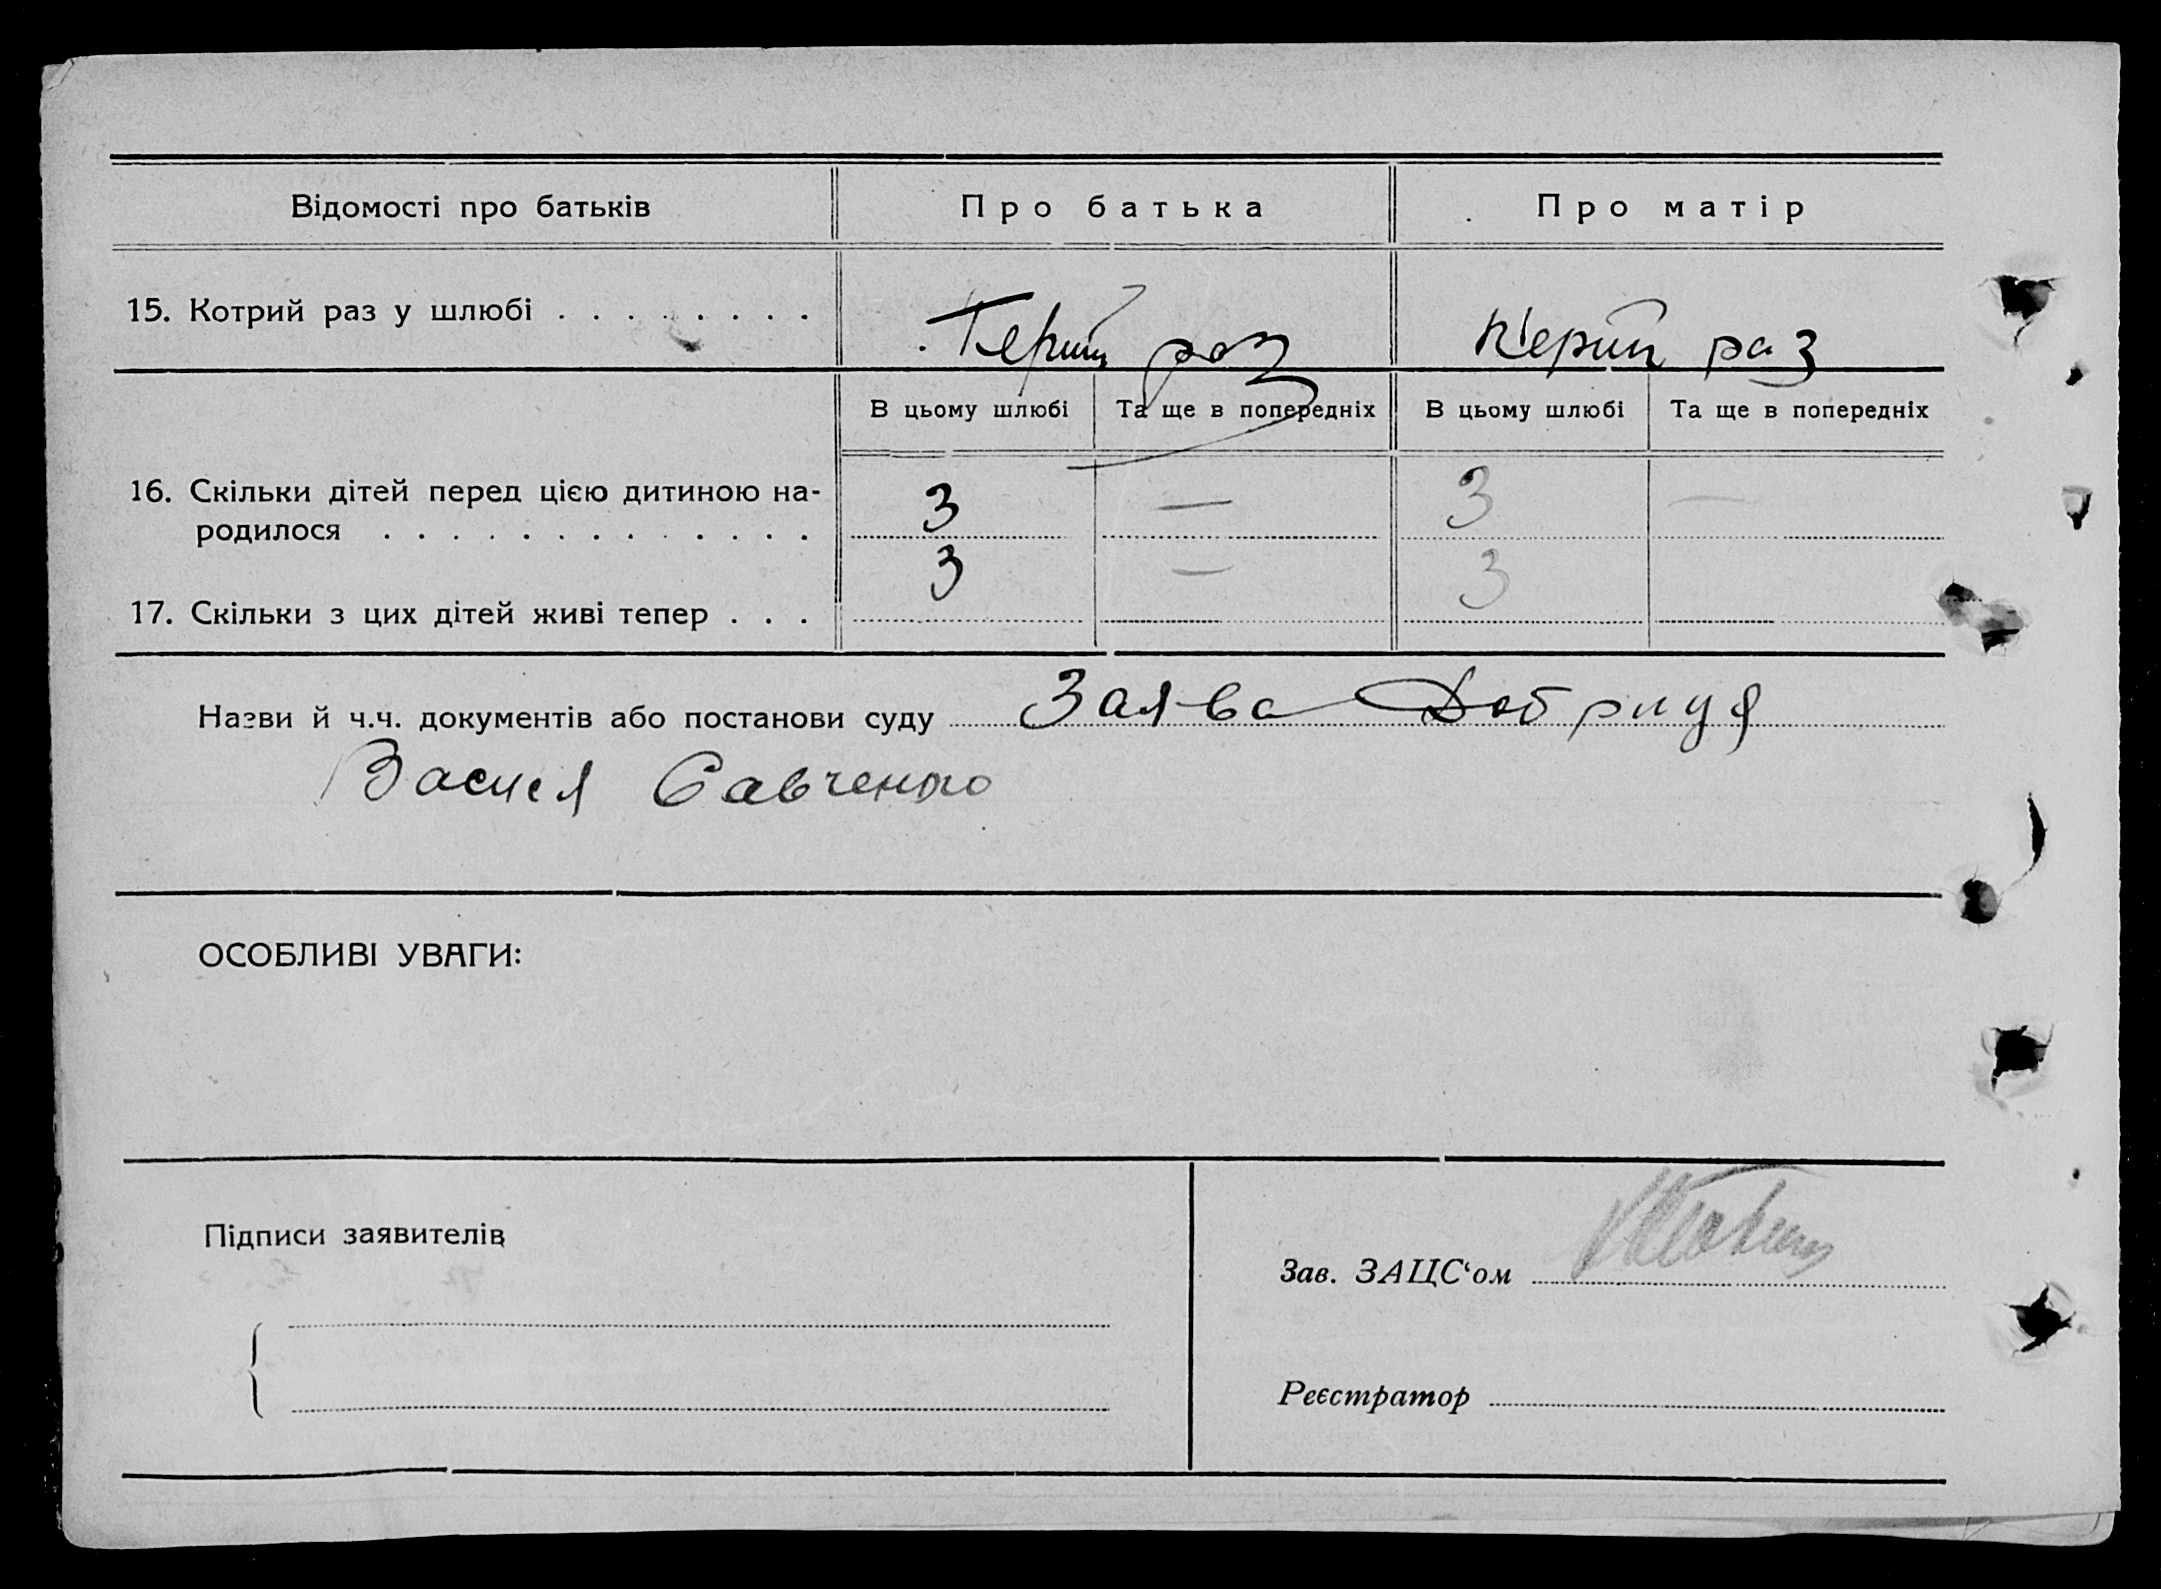 Відомості про батьків Про батька Про матір
15. Котрий раз у шлюбі . . . . . . . . Перший раз Перший раз
В цьому шлюбі Та ще в попередніх В цьому шлюбі Та ще в попередніх
16. Скільки дітей перед цією дитиною на-
родилося . . . . . . . . . . . . . 3 — 3 —
17. Скільки з цих дітей живі тепер . . . 3 — 3
Назви й ч.ч. документів або постанови суду Заява
Савченко
ОСОБЛИВІ УВАГИ:
Підписи заявителів
Зав. ЗАЦС‘ом
Реєстратор